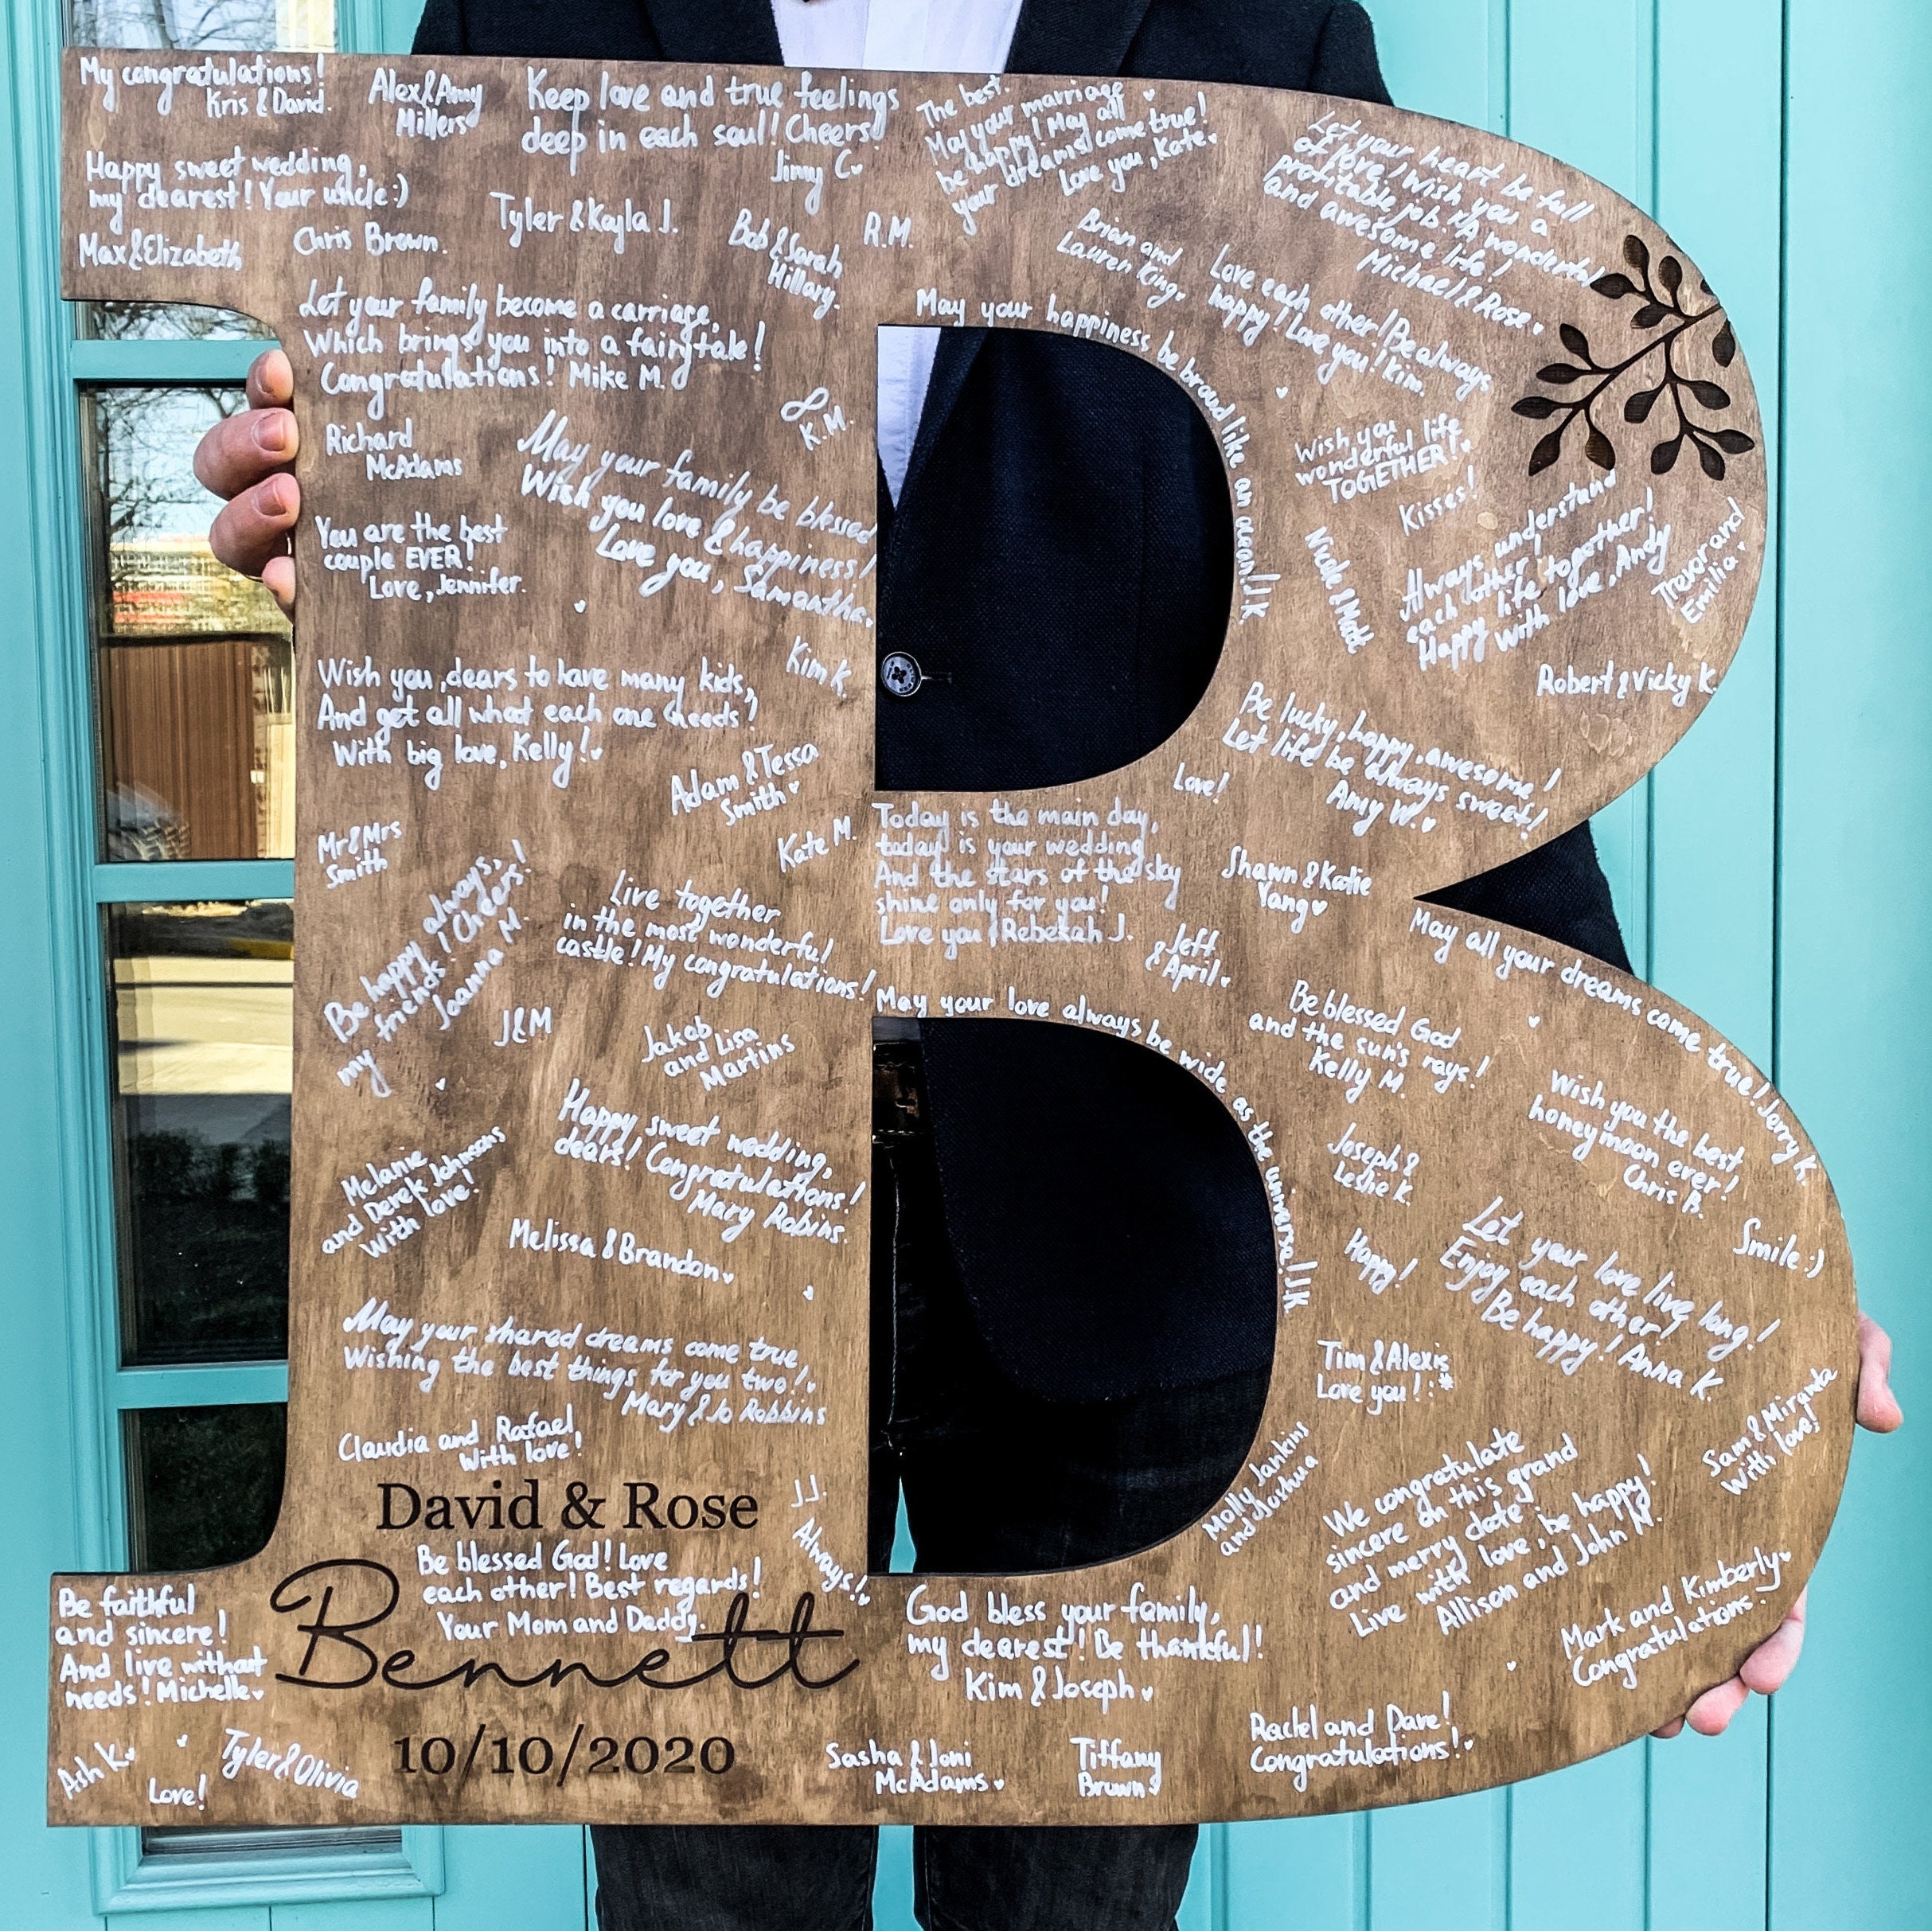 My congratulations!
Kris & David.
Alex & Amy
Millers
Keep love and true feelings
deep in each soul! Cheers!
Jimy C.
The best.
May your marriage
be happy! May all
your dreams come true!
Love you, Kate.
Let your heart be full
of love, wish you a
profitable job! A wonderful
and awesome life!
Michael & Rose.
Happy sweet wedding,
my dearest! Your uncle:)
Max & Elizabeth
Chris Brown.
Tyler & Kayla J.
Bob & Sarah
Hillary.
R.M.
Brian and
Lauren King.
Love each other! Be always
happy! Love you! Kim.
Let your family become a carriage,
Which brings you into a fairytale!
Congratulations! Mike M.
May your happiness be broud like an ocean! J.K
& K.M.
Richard
McAdams
May your family be blessed
Wish you love & happiness!
Love you, Samantha.
Wish you
wonderful life
TOGETHER!
Kisses!
You are the best
couple EVER!
Love, Jennifer.
Nicole & Matt
Always understand
each other
Happy life together!
With love, Andy
Trevor and
Emilia
Kim K.
Robert & Vicky K.
Wish you, dears to have many kids,
And get all what each one needs!
With big love, Kelly!
Be lucky, happy, awesome!
Let life be always sweet!
Amy W.
Love!
Adam & Tessa
Smith
Kate M.
Mr & Mrs
Smith
Today is the main day,
today is your wedding
And the stars of the sky
shine only for you!
Love you! Rebekah J.
Shawn & Katie
Yang
Be happy always,
my friends! Cheers!
Joanna M.
Live together
in the most wonderful
castle! My congratulations!
Jeff
& April
May all your dreams come true! Jerry K.
J & M
Jakob
and Lisa
Martins
May your love always be wide as the universe! J.K
Be blessed God
and the sun's rays!
Kelly M.
Wish you the best
honeymoon ever!
Chris B.
Happy sweet wedding,
dears! Congratulations!
Mary Robins.
Joseph &
Leslie K.
Melanie
and Derek Johnsons
With love!
Melissa & Brandon
Happy!
Smile:)
Let your love live long!
Enjoy each other!
Be happy! Anna K.
May your shared dreams come true,
Wishing the best things for you two!
Mary & Jo Robbins
Tim & Alexis
Love you! :*
Claudia and Rafael
With love!
Molly Jankins
and Joshua
Sam & Miranda
With love!
David & Rose
J.J.
Always!
We congratulate
sincere on this grand
and merry date!
Live with love, be happy!
Allison and John N.
Be blessed God! Love
each other! Best regards!
Your Mom and Daddy.
Bennett
Be faithful
and sincere!
And live without
needs! Michelle
God bless your family,
my dearest! Be thankful!
Kim & Joseph
Mark and Kimberly
Congratulations.
10/10/2020
Ash K.
Love!
Tyler & Olivia
Sasha & Joni
McAdams
Tiffany
Brown
Rachel and Dave!
Congratulations!